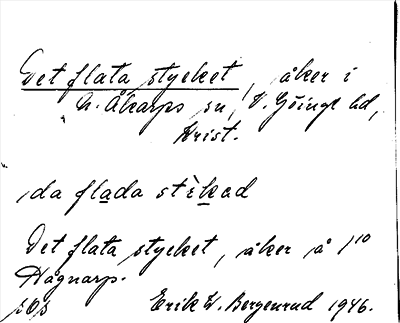 Det flata stycket, åker i
N. Åkarps sn, V. Göinge hd,
Krist.
da flada stèkad
Det flata stycket, åker å 1/10
Hågnarp.
Erik W. Bergenrud 1946.